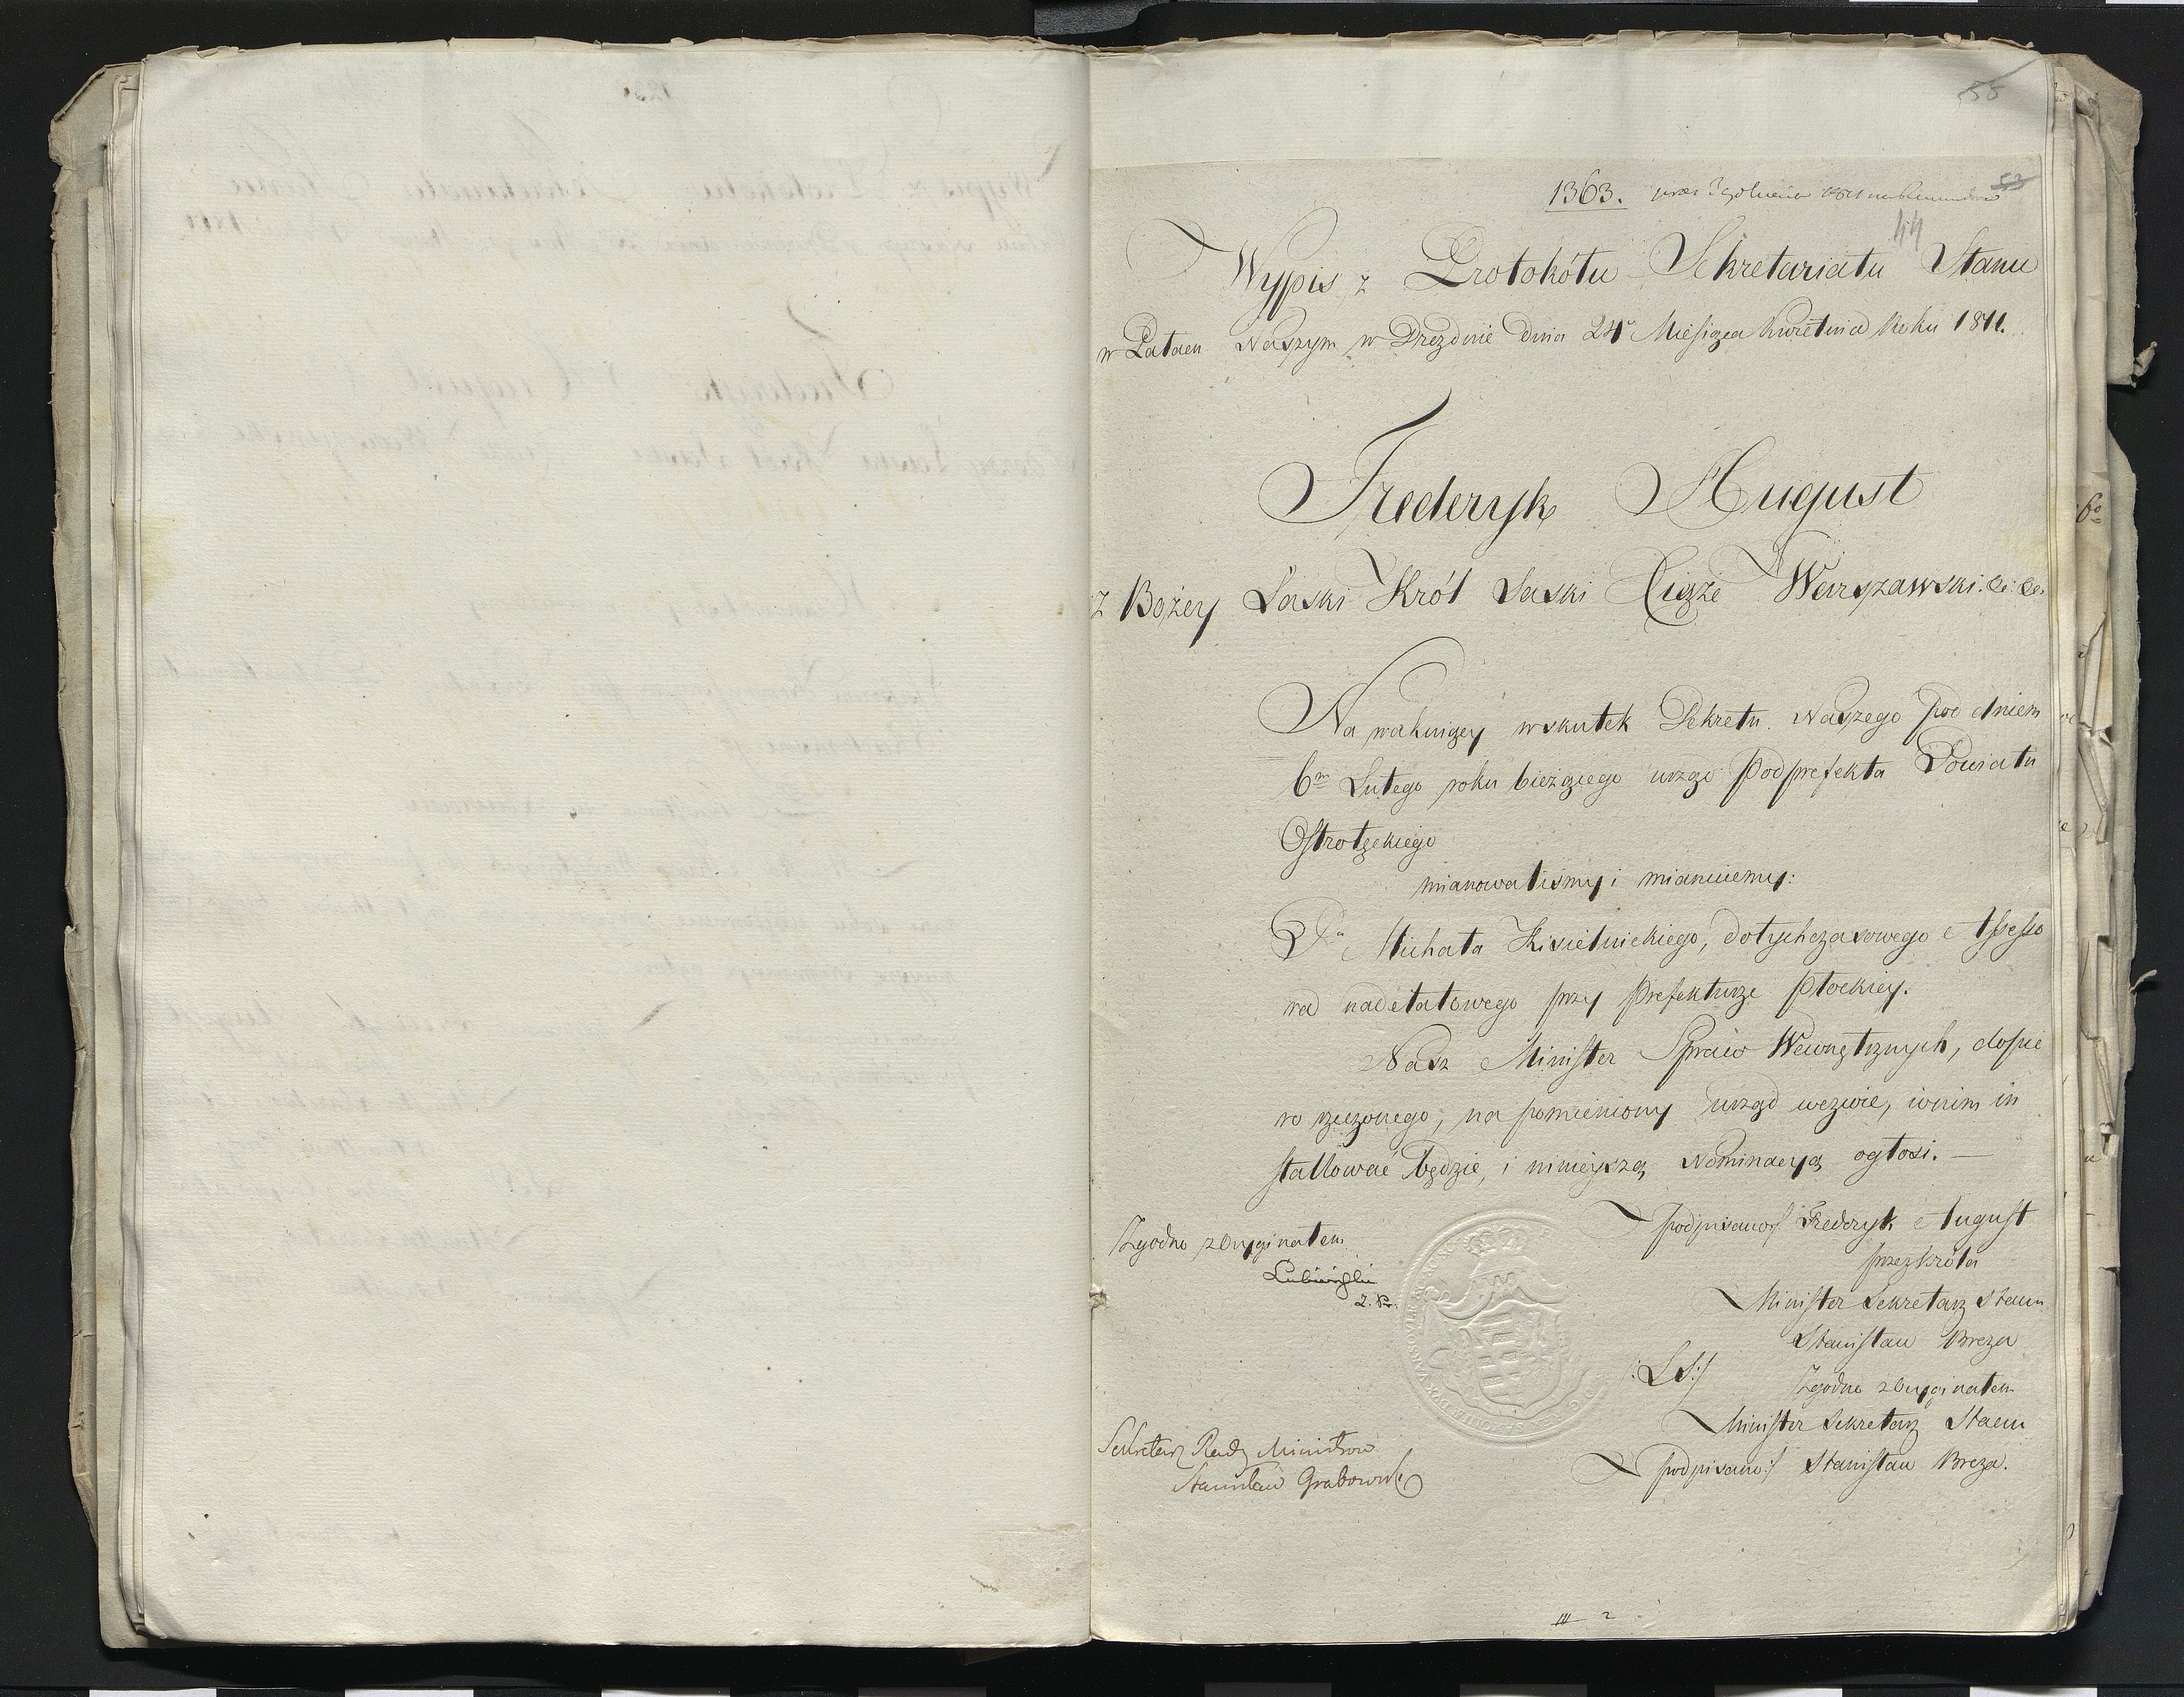 55
1363.
53
44
Wypis z Protokółu Sekretariatu Stanu
w Pałacu Naszym w Dreznie dnia 24º Miesiąca Kwietnia Roku 1811.
Frederyk August
z Bożey Łaski Król Saski Xiąże Warszawski. &. &.
Na wakuiący wskutek Dekretu Naszego pod dniem
6m Lutego roku bieżącego urząd Podprefekta Powiatu
Ostrołęckiego
mianowaliśmy i mianuiemy:
Pa Michała Kisielnickiego, dotychczasowego Assesso
ra nadetatowego przy Prefekturze Płockiey.
Nasz Minister Spraw Wewnętrznych, dopie
ro rzeczonego, na pomieniony urząd wezwie, i w nim in
stallować będzie, i ninieyszą Nominacyą ogłosi. —
podpisano/ Frederyk August
przez Króla
Minister Sekretarz Stanu
Stanisław Breza
/:LS:/
Zgodno z Oryginałem
Minister Sekretarz Stanu
podpisano:/ Stanisław Breza.
Zgodno z Oryginałem
Sekretarz Rady Ministrow
Stanisław Grabowski
III 2